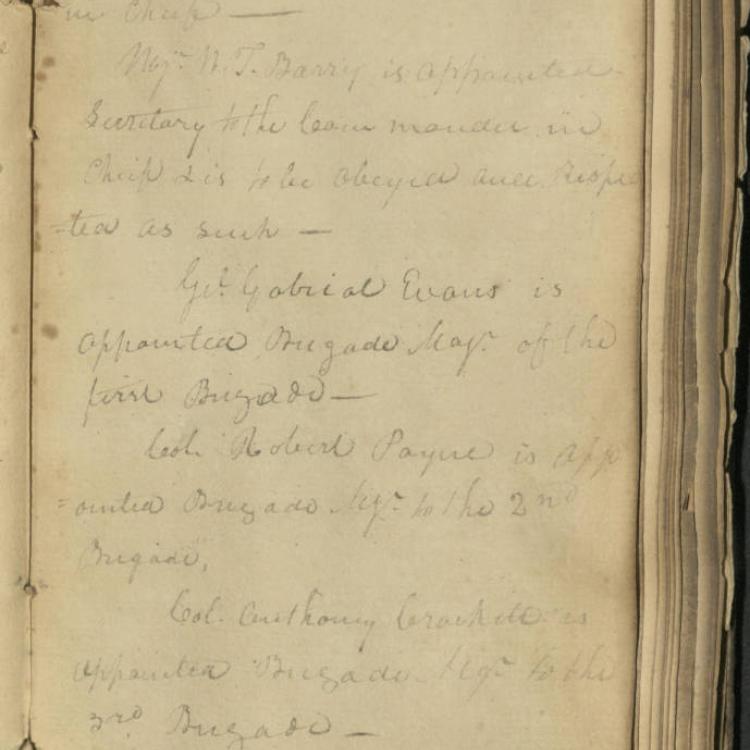 in Cheif —
Majr. W. T. Barry is appointed
Secretary to the Com mander in
Cheif & is to be obeyed and Respe
=ted as such —
Gabrial Evans is
appointed Brigade Majr. of the
first Brigade —
Col. Robert Payne is app
=ointed Brigade Mjr. to the 2nd
Brigade,
Col. Anthony Crockett is
appointed Brigade Mjr. to the
3rd Brigade —